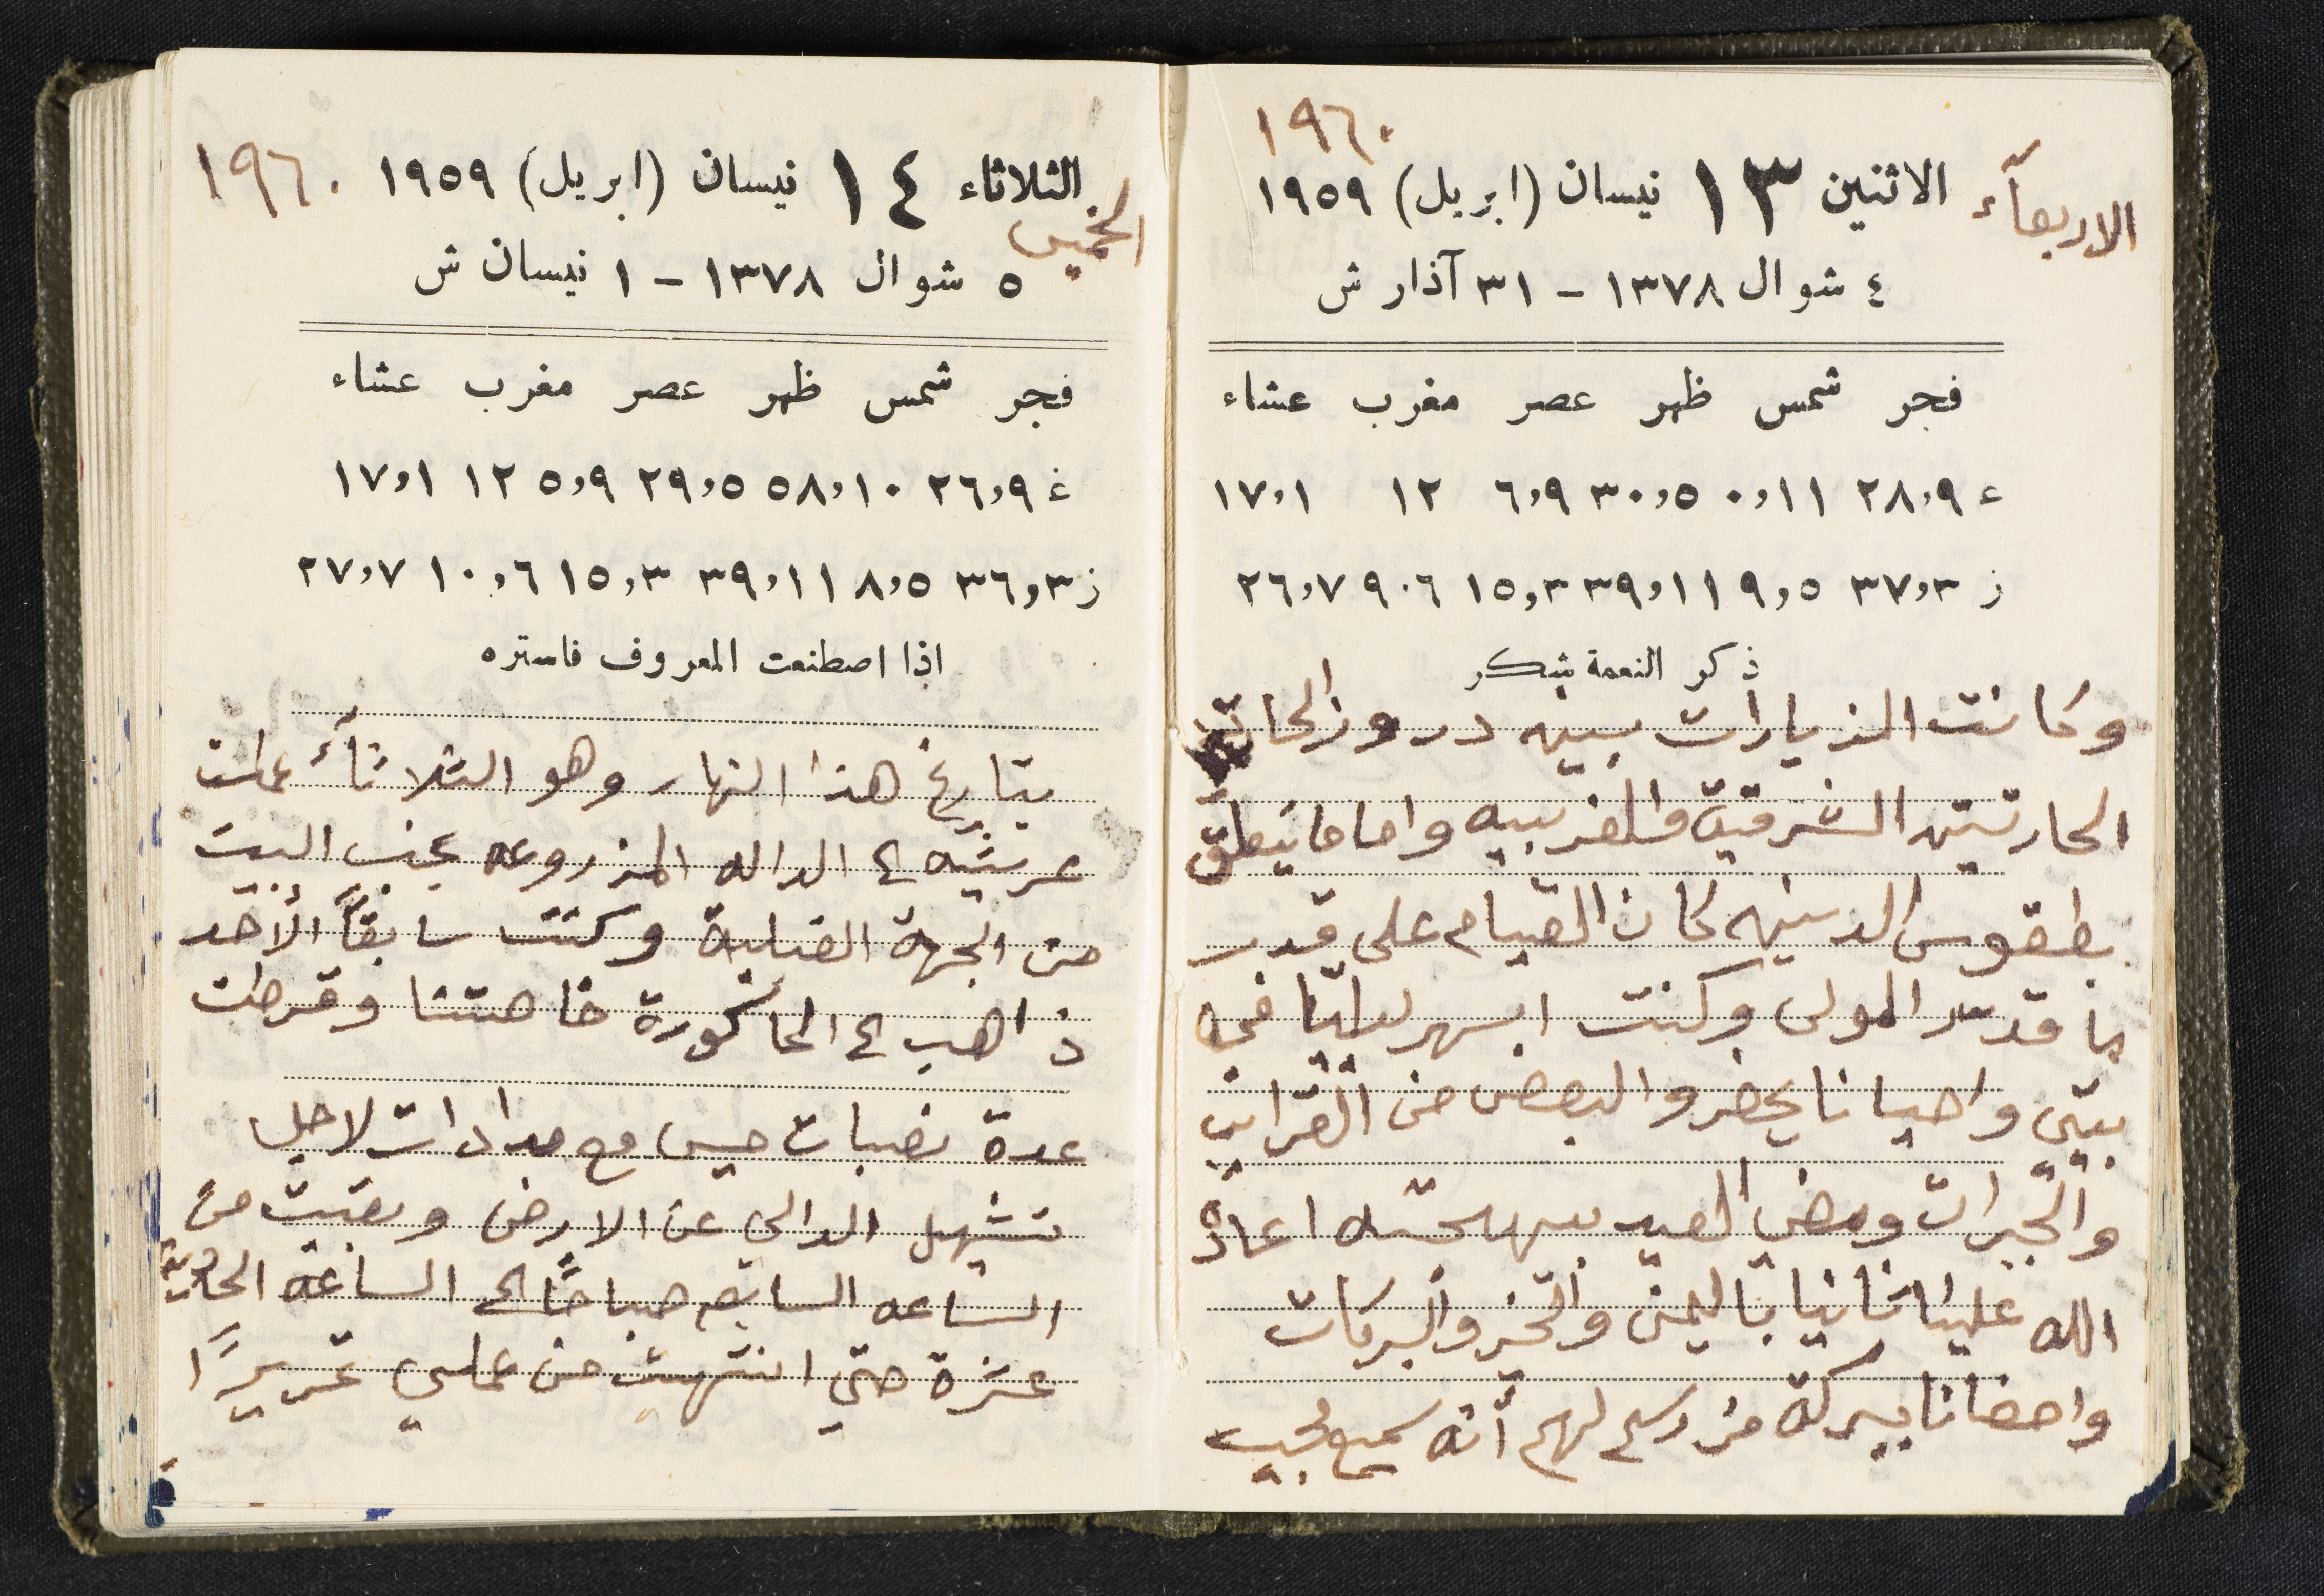 ١٩٦٠
الاربعآء
الاثنين ١٣ نيسان (ابريل) ١٩٥٩
٤ شوال ١٣٧٨ - ٣١ آذار ش
فجر شمس ظهر عصر مغرب عشاء
ع ٢٨,٩ ٠,١١ ٣٠,٥ ٦,٩ ١٢ ١٧,١
ز ٣٧,٣ ٩,٥ ٣٩,١١ ١٥,٣ ٩٠٦ ٢٦,٧
ذكر النعمة شكر
وكانت الزيارات بين دروز الحارتين
الحارتين الشرقية والغربيه واما ما يتعلق
بطقوس الدينيه كان القيام على قدر
ما قدر المولى وكنت اسهر لياليا في
بيتي واحيانا يحضروا البعض من القرايب
والجيران ومضى العيد ببهجته اعاده
الله علينا ثانيا باليمن والخير والبركات
واحضانا ببركة من رسم لهم أنه سميع مجيب
الثلاثاء ١٤ نيسان (ابريل) ١٩٥٩ ١٩٦٠
الخميس
٥ شوال ١٣٧٨ - ١ نيسان ش
فجر شمس ظهر عصر مغرب عشاء
غ ٢٦,٩ ٥٨,١٠ ٢٩,٥ ٥,٩ ١٢ ١٧,١
ز ٣٦,٣ ٨,٥ ٣٩,١١ ١٥,٣ ١٠,٦ ٢٧,٧
اذا اصطنعت المعروف فاستره
بتاريخ هذا النهار وهو الثلاثآء عملت
عريشه الى الداله المزروعه بجنب البيت
من الجهة القبلية وكنت سابقاً الأحد
ذاهب الى الحاكورة خاصتنا وقرطت
عدة نصبات ميس مع مدادات لاجل
تشهيل الدالي عن الارض وبقيت من
الساعه السابعه صباحًا الى الساعة الحادية
عشرة حتى انتهيت من عملي تحريرًا